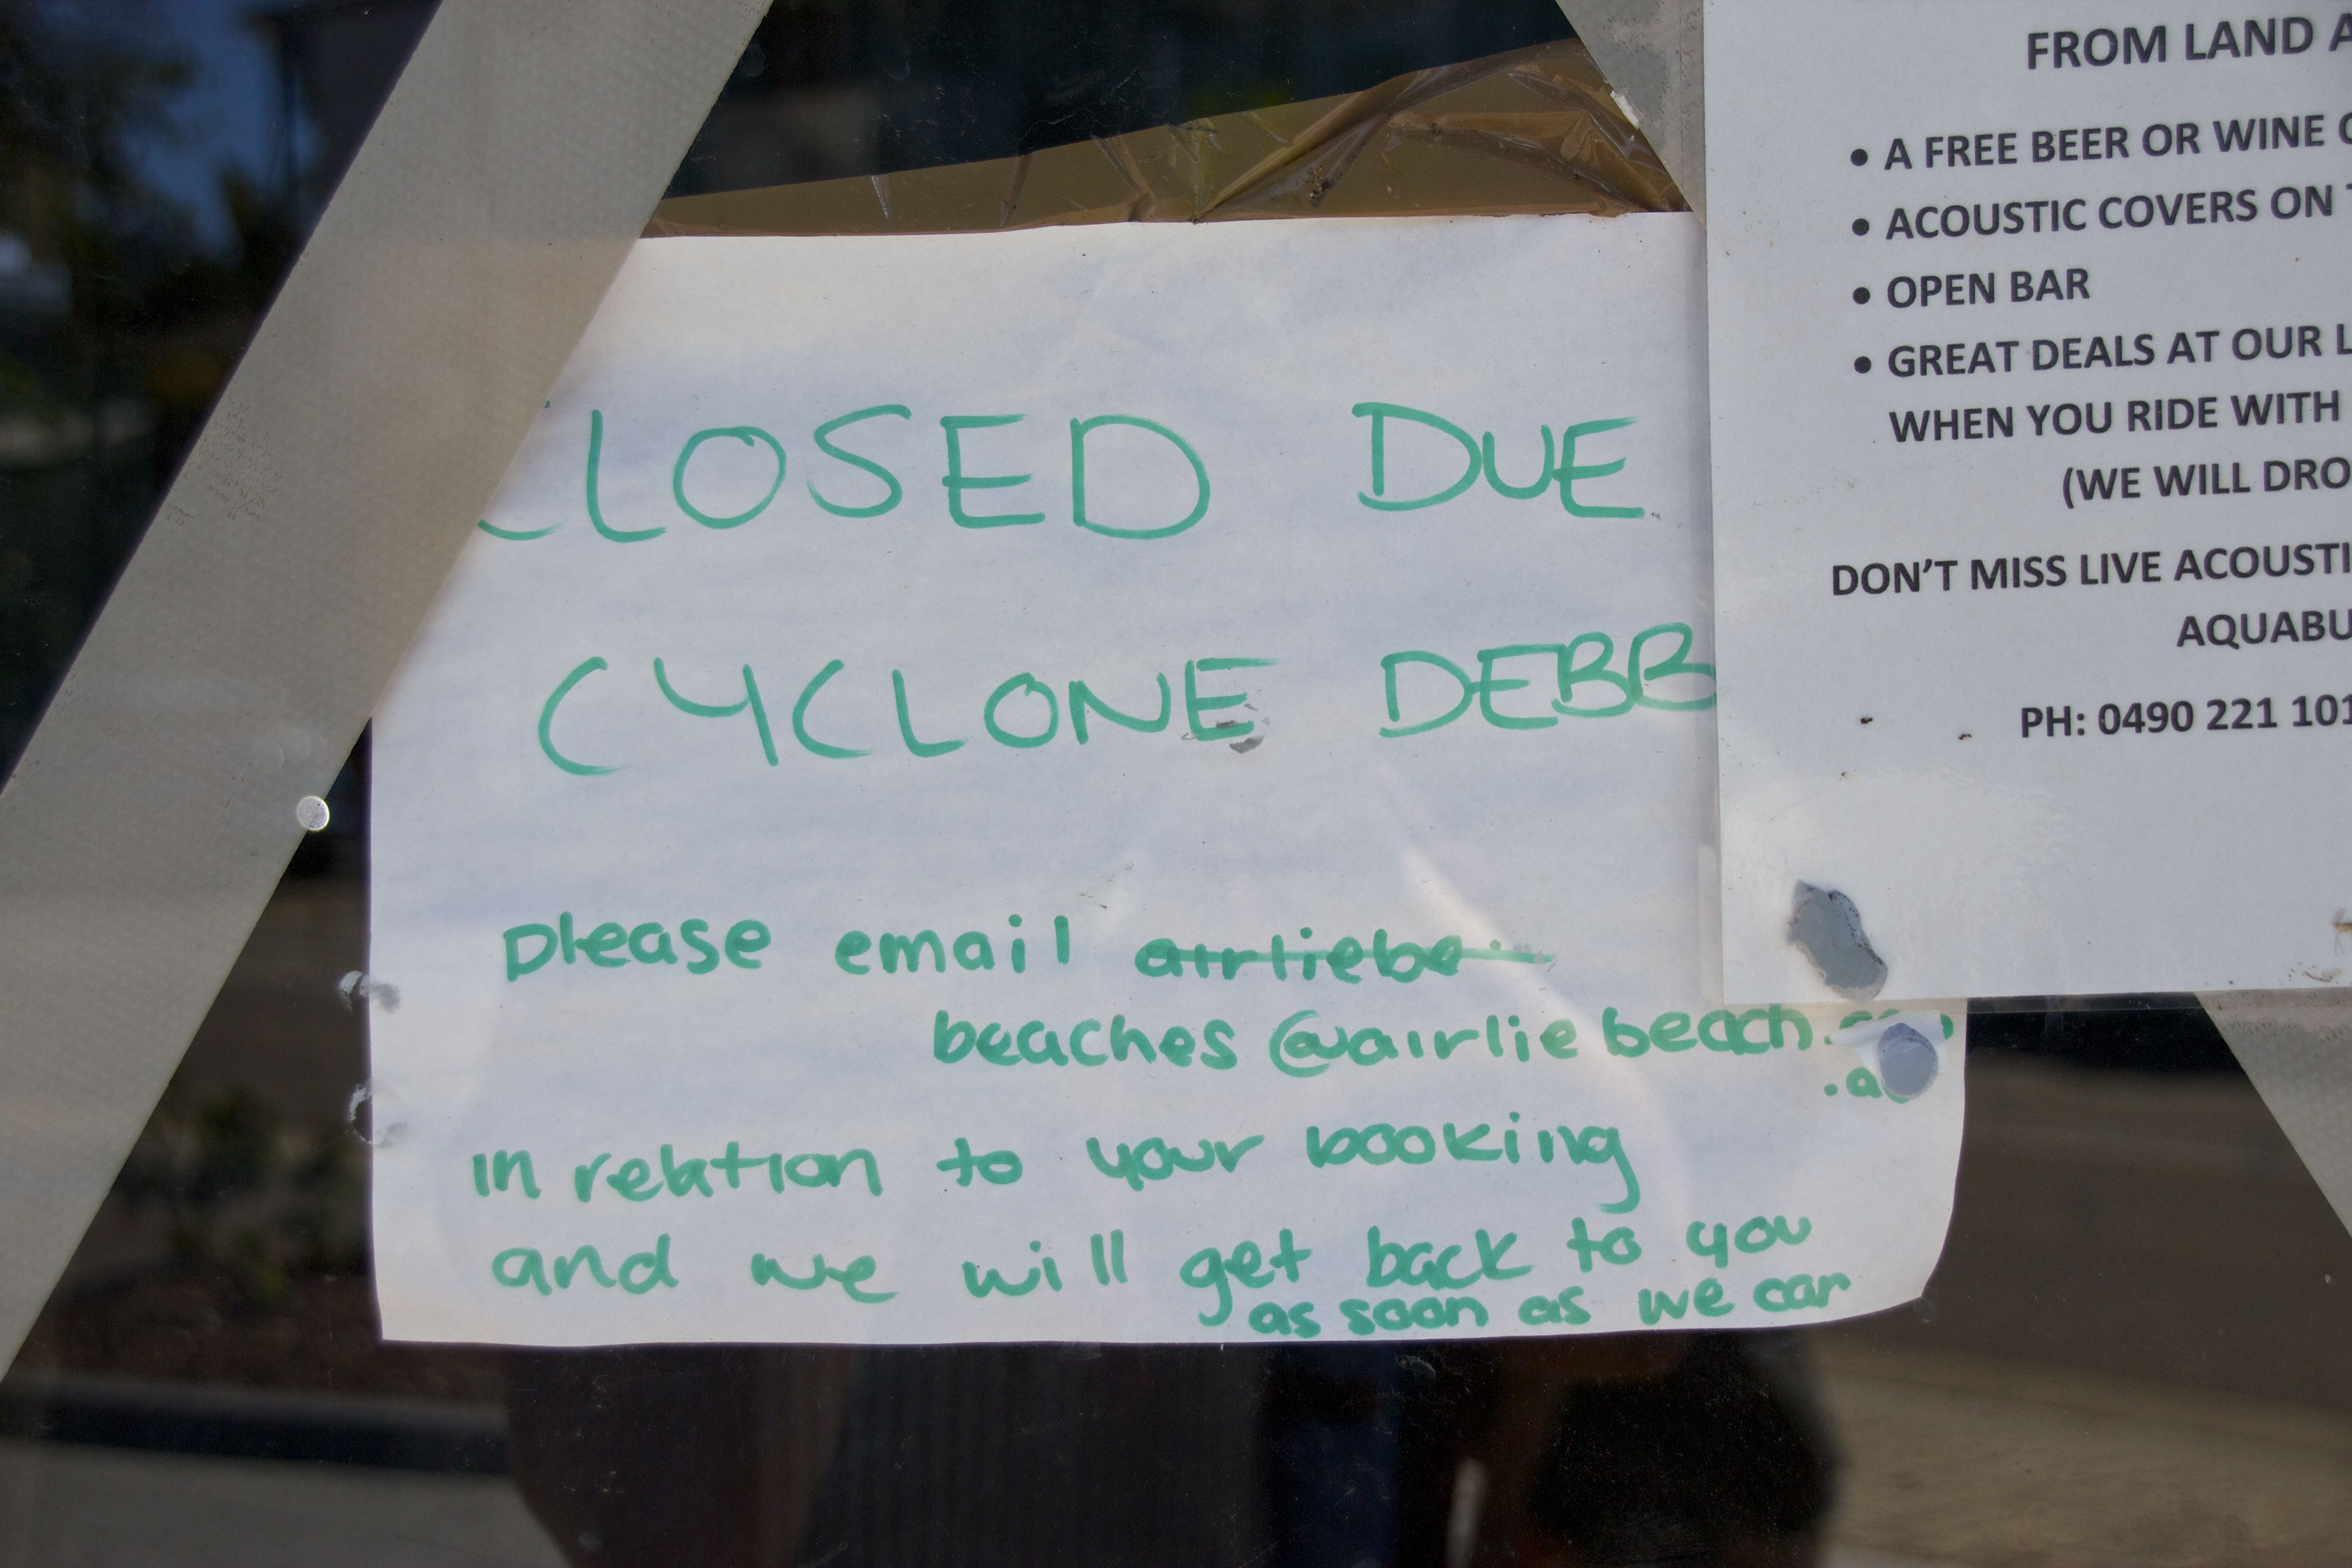 CLOSED DUE
CYCLONE DEBB
Please email airliebe
beaches@airliebeach.com
.au
in relation to your booking
and we will get back to you
as soon as we can
FROM LAND A
• A FREE BEER OR WINE
• ACOUSTIC COVERS ON
• OPEN BAR
• GREAT DEALS AT OUR L
WHEN YOU RIDE WITH
(WE WILL DRO
DON'T MISS LIVE ACOUSTI
AQUABU
PH: 0490 221 101